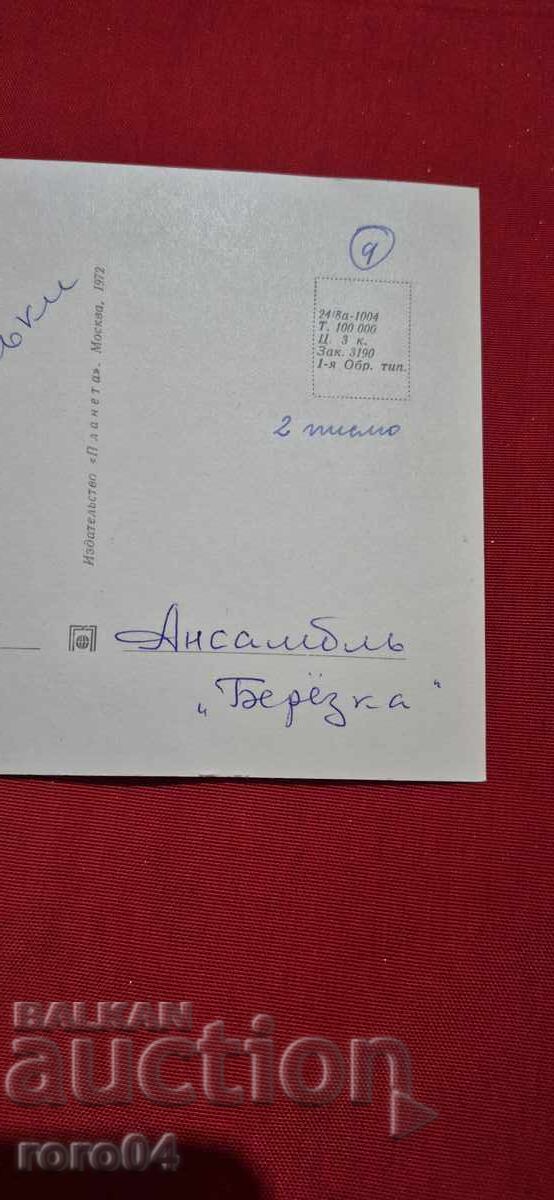 9
24/8а-1004
Т. 100 000
Ц. 3 к.
Зак. 3190
1-я Обр. тип.
2 писмо
Издательство «Планета». Москва, 1972
Ансамбль
„Берёзка“
BALKAN
auction
roro04